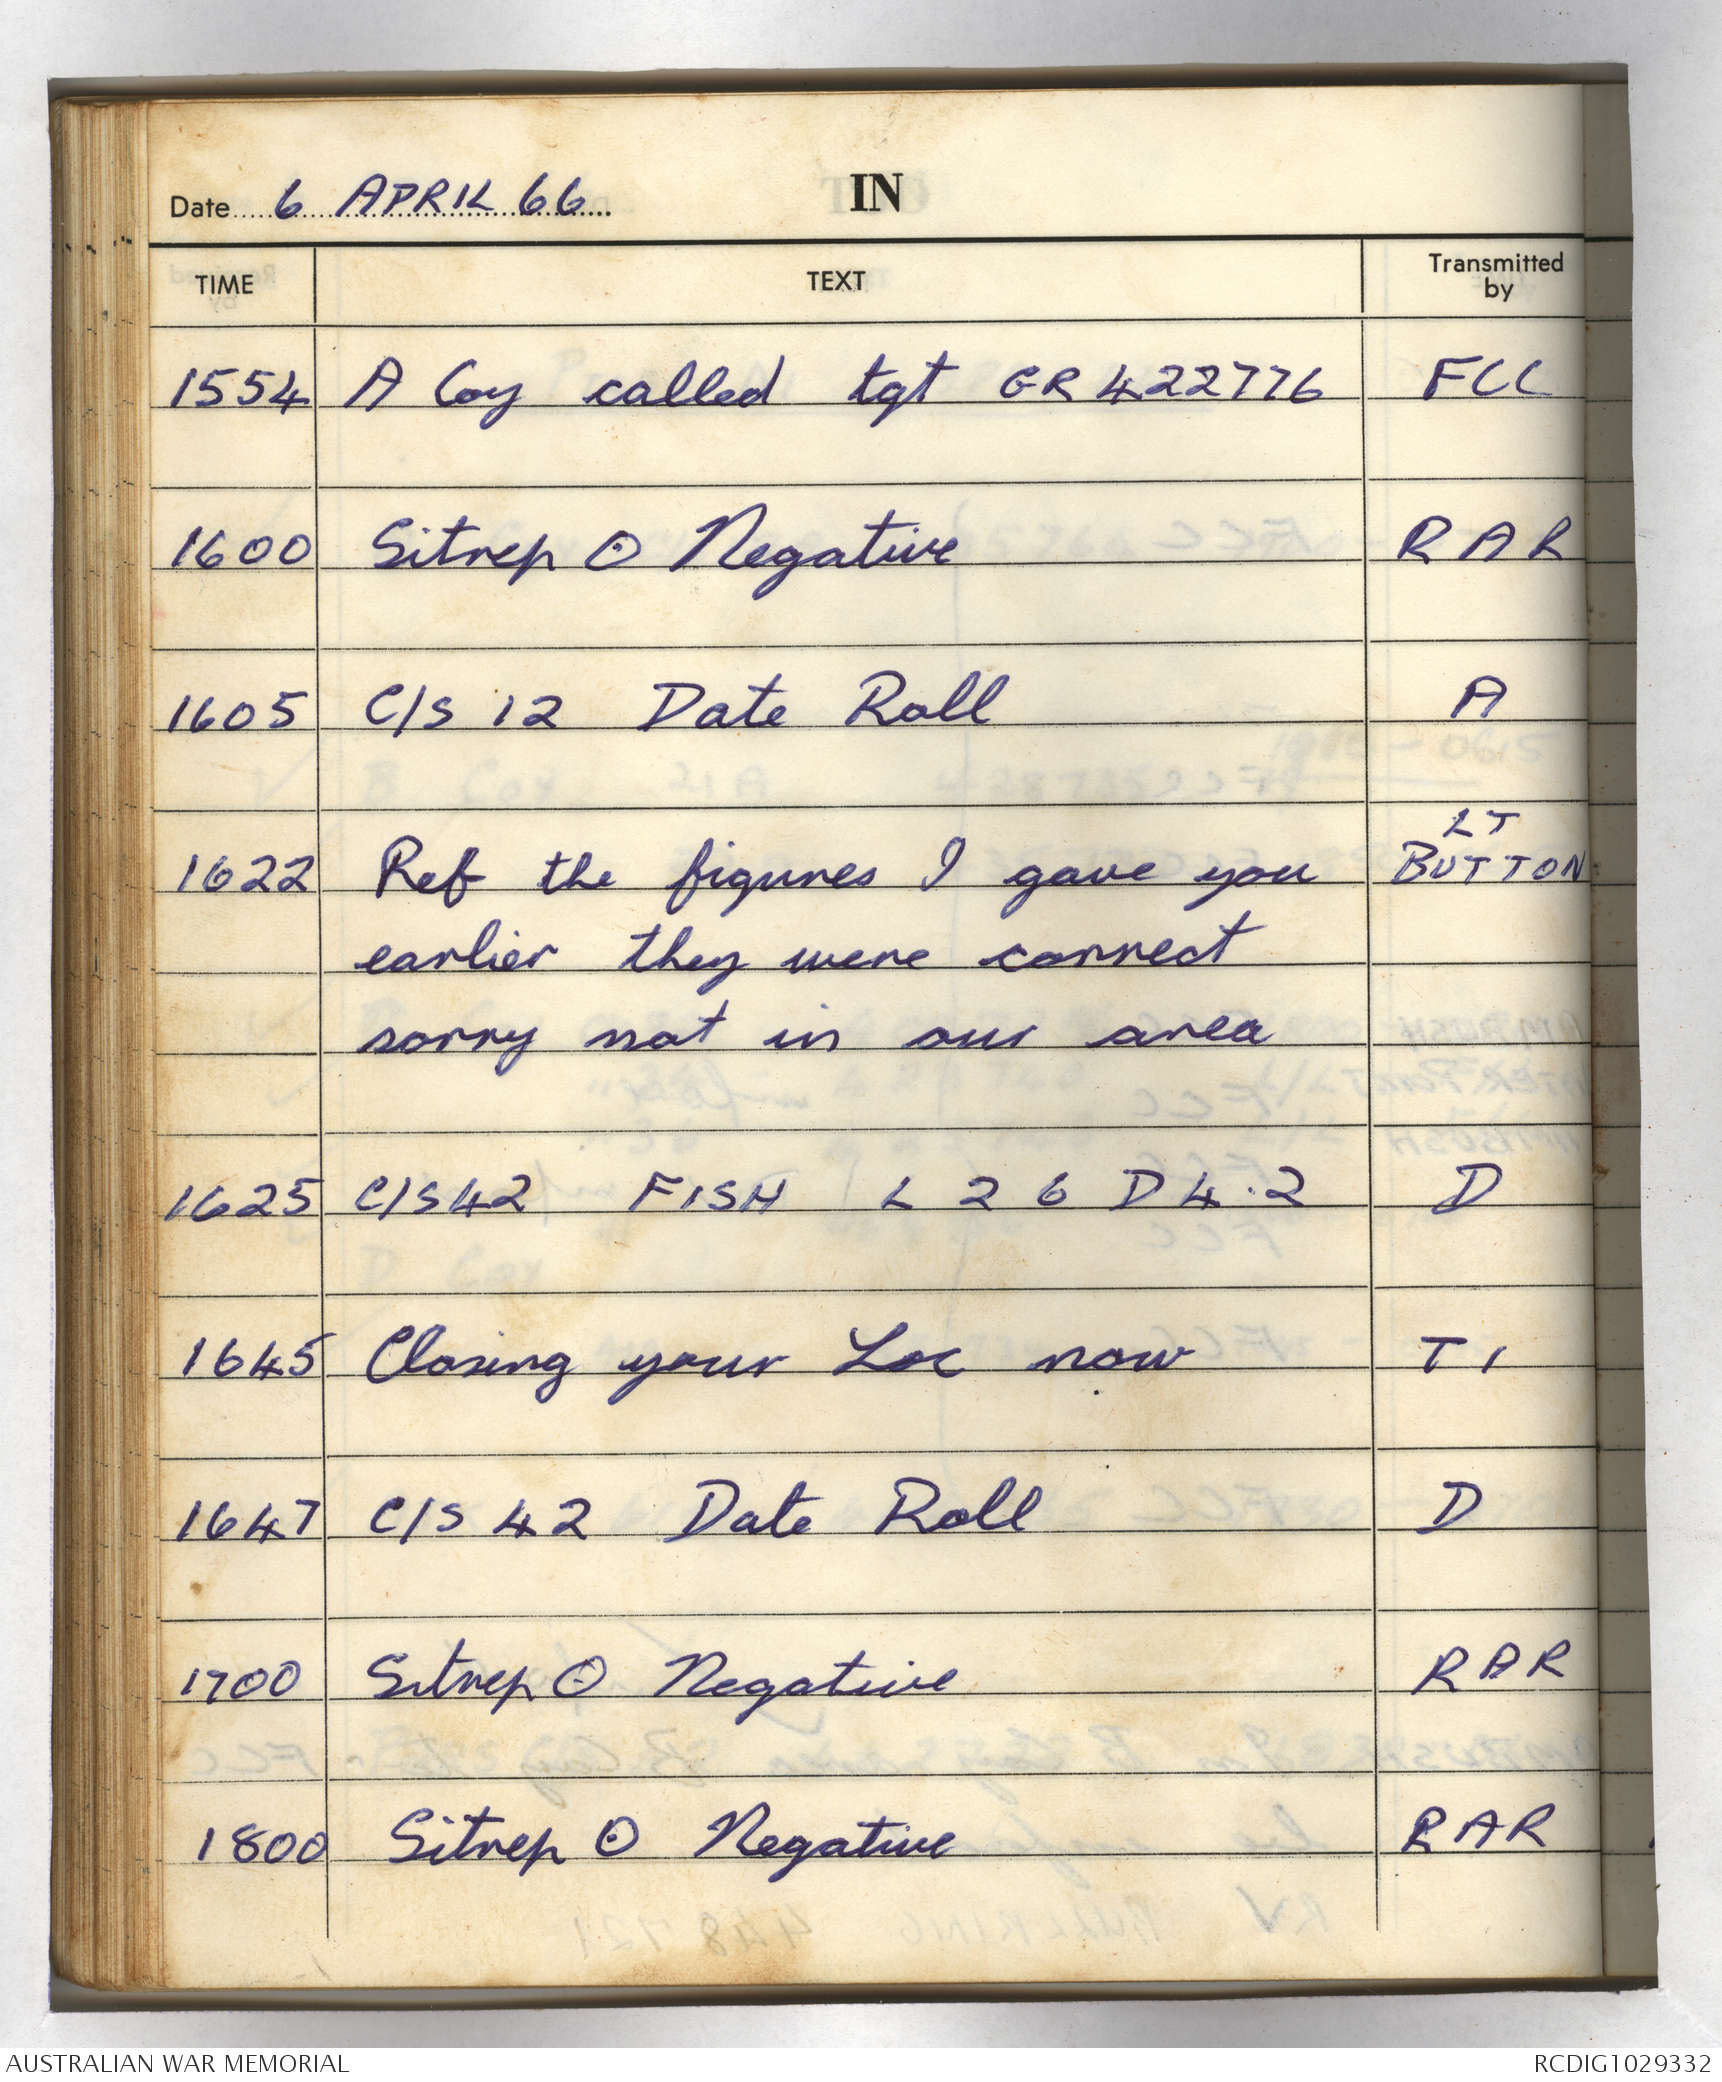 Date 6 APRIL 66 IN
TIME TEXT Transmitted by
1554 A Coy called tgt GR 422776 FCC
1600 Sitrep ⊙ Negative RAR
1605 C/S 12 Date Roll A
1622 Ref the figures I gave you LT BUTTON
earlier they were correct
sorry not in our area
1625 C/S 42 FISH L 26 D 4.2 D
1645 Closing your Loc now T1
1647 C/S 42 Date Roll D
1700 Sitrep ⊙ Negative RAR
1800 Sitrep ⊙ Negative RAR
AUSTRALIAN WAR MEMORIAL RCDIG1029332